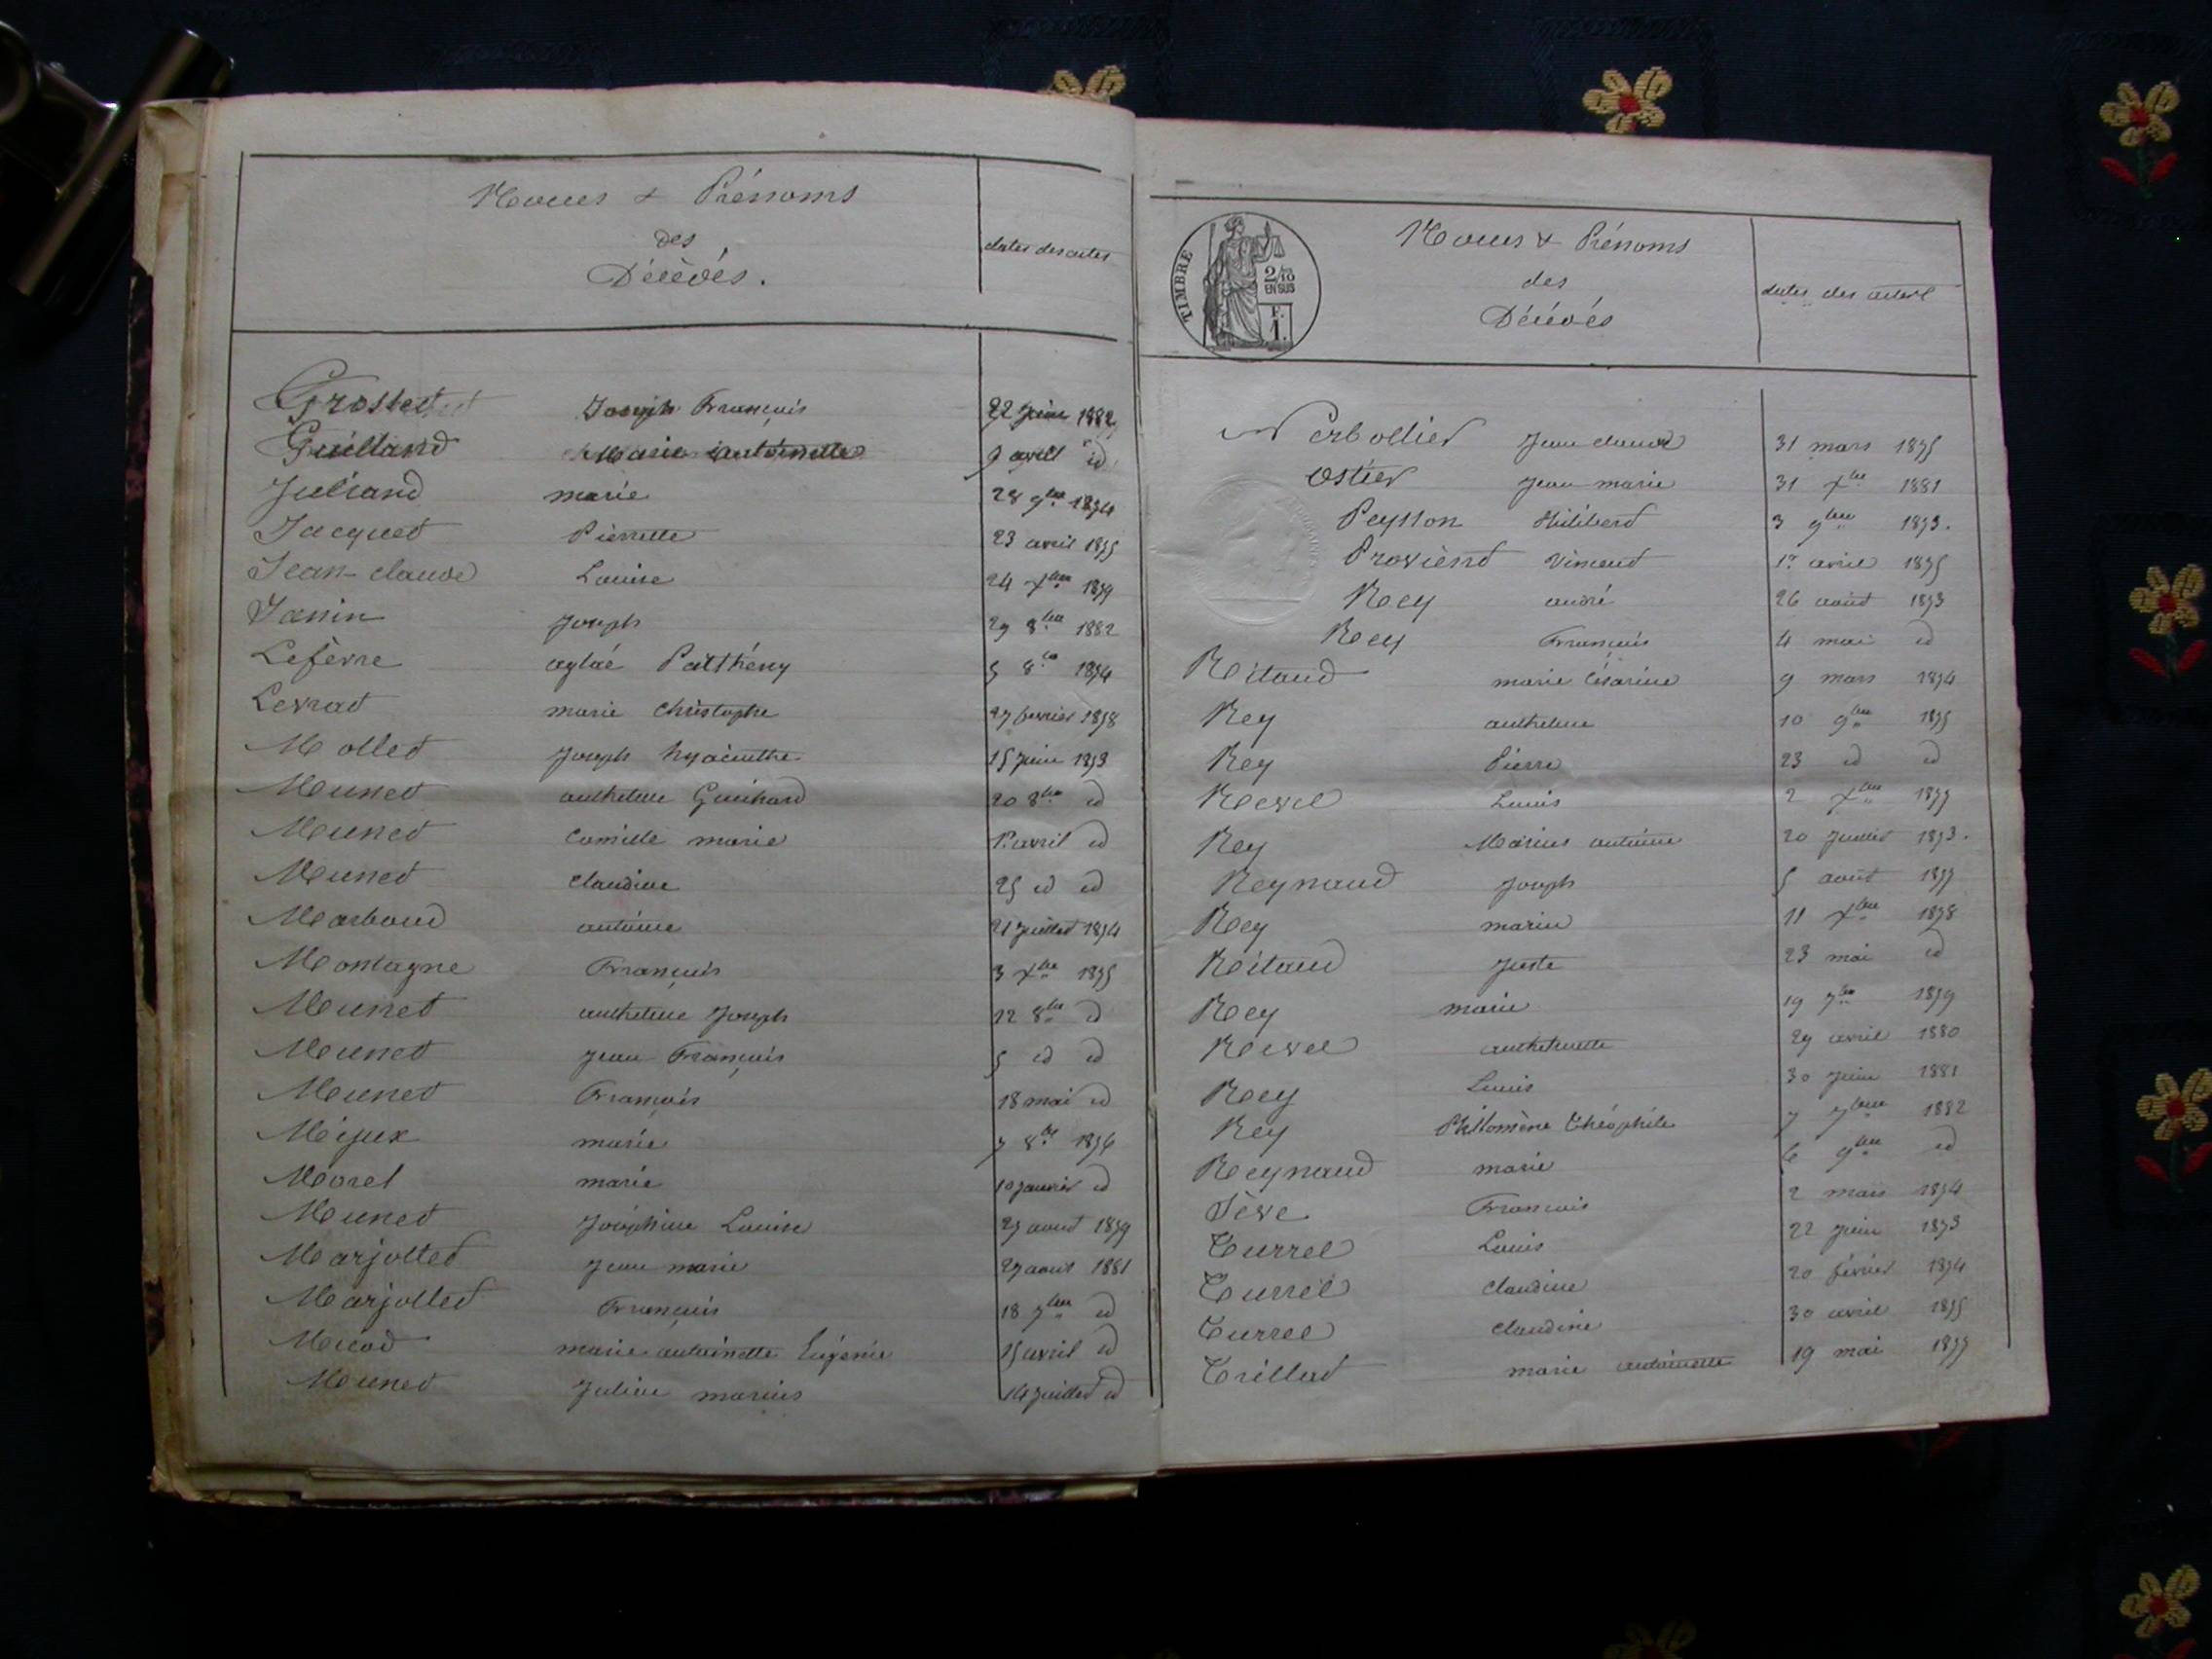 Noms & Prénoms
des
Décédés.
dates des actes
Grostet Joseph François 22 Juin 1882
Guilland Marie Antoinette 9 avril id
Juliand marie 28 9bre 1874
Jacquet Pierrette 23 avril 1875
Jean-claude Louise 24 Xbre 1879
Janin Joseph 29 8bre 1882
Lefèvre aglaé 5 8bre 1874
Levrat marie Christophe 27 fevrier 1878
Mollet Joseph hyacinthe 15 Juin 1873
Meunet anthelme 20 8bre id
Meunet Camille marie 1er avril id
Meunet Claudine 25 id id
Marboud antoine 21 Juillet 1874
Montagne François 3 Xbre 1875
Meunet anthelme Joseph 22 8bre id
Meunet Jean François 5 id id
Meunet François 18 mai id
marie 7 8bre 1876
Morel marie 10 Janvier id
Meunet Joséphine Louise 1879
Marjollet Jean marie 27 aout 1881
Marjollet François 18 7bre id
marie antoinette Eugénie 15 avril id
Meunet Julien marius 14 Juillet id
TIMBRE
2/10
EN SUS
F.
1.
Noms & Prénoms
des
Décédés
dates des actes
Nerbollier Jean claude 31 mars 1875
Ostier Jean marie 31 Xbre 1881
Peysson Philibert 3 9bre 1873.
Provient Vincent 1er avril 1875
Rey andré 26 août 1873
Rey François 4 mai id
Ritaud marie Césarine 9 mars 1874
Rey anthelme 10 9bre 1875
Rey Pierre 23 id id
Revel Louis 2 Xbre 1877
Rey Marius antoine 20 Juillet 1873.
Reynaud Joseph 5 août 1877
Rey marie 11 Xbre 1878
Ritaud Juste 23 mai id
Rey marie 19 7bre 1879
Revel anthelmette 29 avril 1880
Rey Louis 30 Juin 1881
Rey Philomène Théophile 7 7bre 1882
Reynaud marie 6 9bre id
Sève François 2 mars 1874
Turrel Louis 22 Juin 1873
Turrel Claudine 20 février 1874
Turrel Claudine 30 avril 1875
Trillat marie antoinette 19 mai 1877